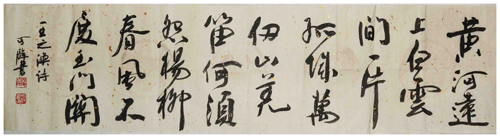 黄河遠
上白雲
間一片
孤城萬
仞山羌
笛何須
怨楊柳
春風不
度玉門關
王之渙诗